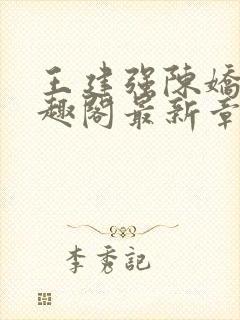 王建强陈嬌
趣阁最新章
李秀記